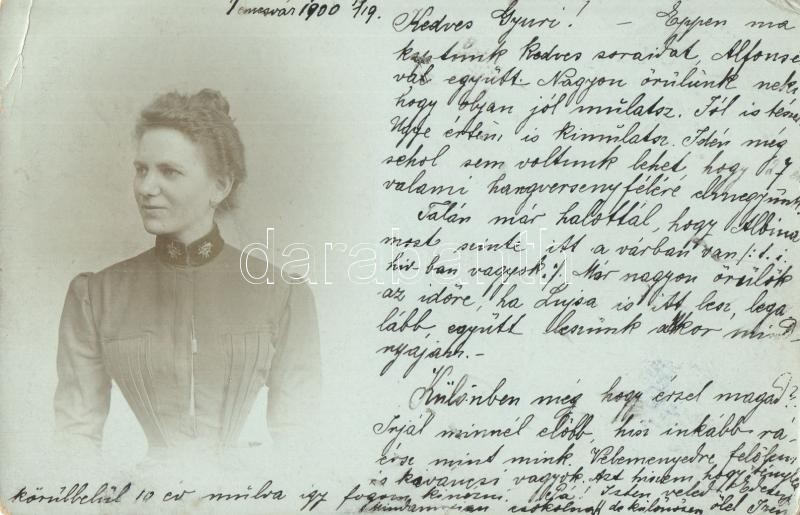 Temesvár 1900 1/19.
Kedves Gyuri! - Eppen ma
kaptunk kedves soraidat, Alfonse
vál együtt. Nagyon örülünk neki
hogy olyan jól mulatsz. Jól is teszed
Ugye értem is kimulatsz. Idén még
sehol sem voltunk lehet, hogy 27
valami hangversenyfélére elmegyünk
Talán már halottál, hogy Albina
most szinte itt a várban van /: t. i.
hiv-ban vagyok :/ Már nagyon örülök
az időre, ha Lujsa is itt lesz, lega
lább együtt leszünk akkor mind
nyájan. -
Különben még hogy érzel magad?
Irjál minnél előbb, hisz inkább rá-
érsz mint mink. Véleményedre felőlem
kiváncsi vagyok. Azt hiszem hogy
körülbelül 10 év mulva igy fogom kinezni. Pá! Isten veled
csokolnak de különösen ölel
darabanth